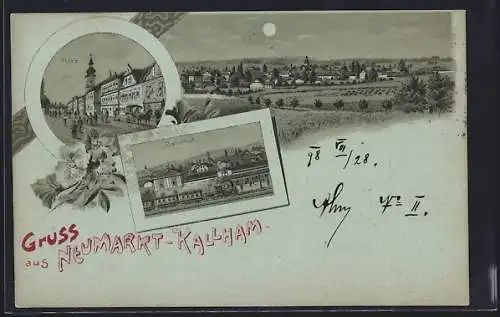 Platz
Bahnhof
98 VII/28.
Gruss
aus Neumarkt-Kallham.